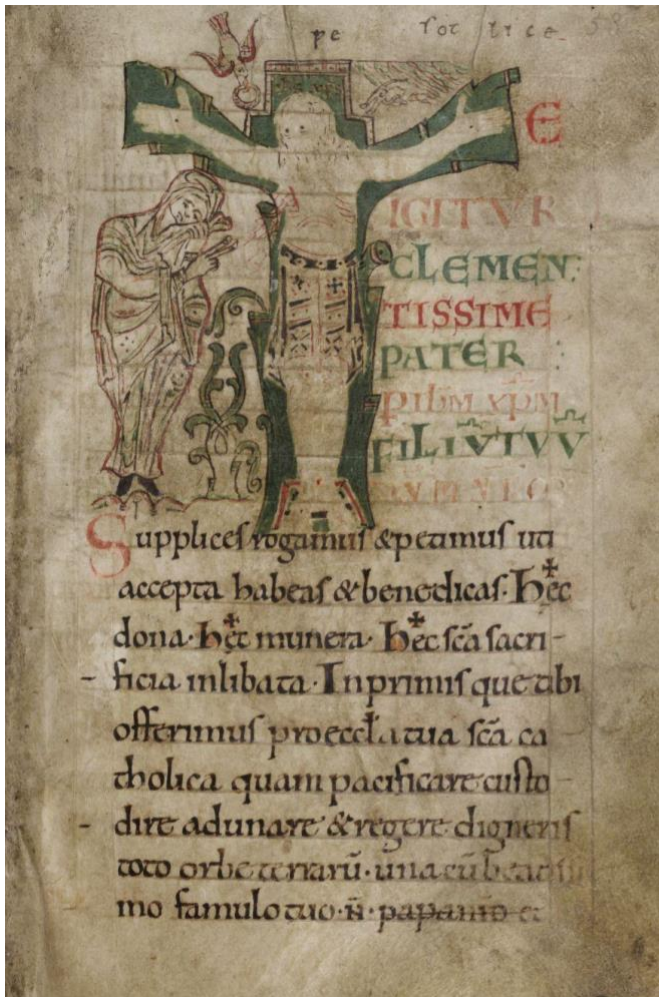 pe
E
IGITVR
CLEMEN
TISSIME
PATER
P IHM XPM
FILIV̄ TVV̄
Supplices rogamus & petimus uti
accepta habeas & benedicas. Hęc
dona. hęc munera. hęc sc̄a sacri-
ficia inlibata. Inprimis que tibi
offerimus pro eccl̄a tua sc̄a ca
tholica quam pacificare custo
dire adunare & regere digneris
toto orbe terrarū. una cū beatissi
mo famulo tuo .n̄. papa nr̄o et